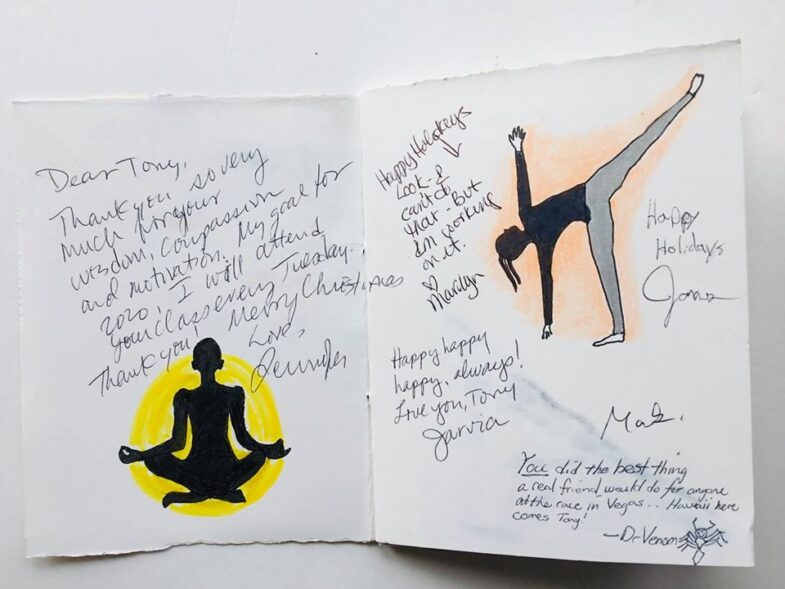 Dear Tony,
Thank you so very
much for your
wisdom, compassion
and motivation. My goal for
2020, I will attend
your class every Tuesday.
Thank you, Merry Christmas
Love,
Jennifer
Happy Holidays
Look-I
can't do
that - But
I'm working
on it.
♡
Marilyn
Happy
Holidays
Happy happy
happy, always!
Love you, Tony
Jarvia
You did the best thing
a real friend would do for anyone
at the race in Vegas.. Hawaii here
comes Tony!
—Dr Venom